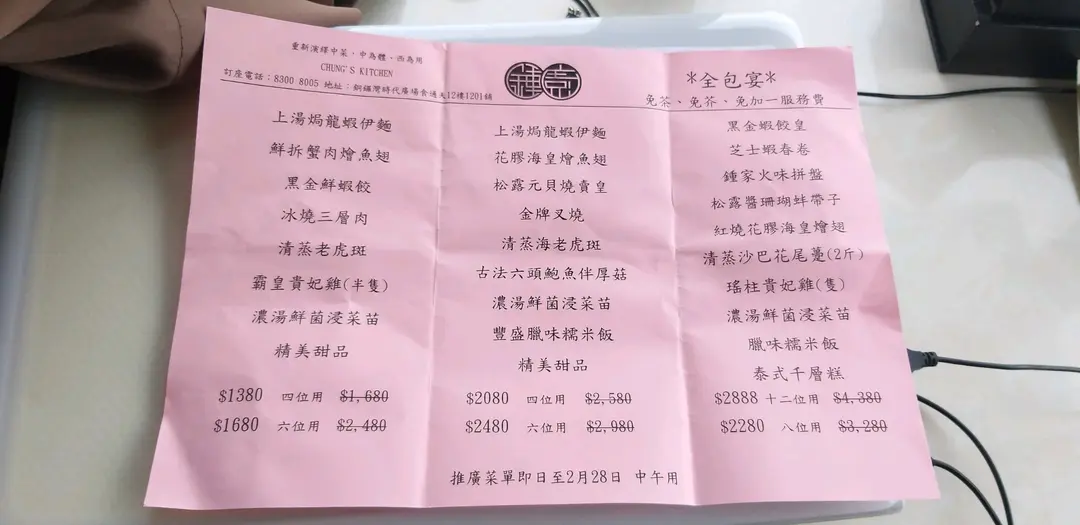 重新演繹中菜，中為體，西為用
CHUNG'S KITCHEN
訂座電話：8300 8005 地址：銅鑼灣時代廣場食通天12樓1201舖
上湯焗龍蝦伊麵
鮮拆蟹肉燴魚翅
黑金鮮蝦餃
冰燒三層肉
清蒸老虎斑
霸皇貴妃雞(半隻)
濃湯鮮菌浸菜苗
精美甜品
$1380 四位用 $1,680
$1680 六位用 $2,480
鍾家
上湯焗龍蝦伊麵
花膠海皇燴魚翅
松露元貝燒賣皇
金牌叉燒
清蒸海老虎斑
古法六頭鮑魚伴厚菇
濃湯鮮菌浸菜苗
豐盛臘味糯米飯
精美甜品
$2080 四位用 $2,580
$2480 六位用 $2,980
*全包宴*
免茶、免芥、免加一服務費
黑金蝦餃皇
芝士蝦春卷
鍾家火味拼盤
松露醬珊瑚蚌帶子
紅燒花膠海皇燴翅
清蒸沙巴花尾躉(2斤)
瑤柱貴妃雞(隻)
濃湯鮮菌浸菜苗
臘味糯米飯
泰式千層糕
$2888 十二位用 $4,380
$2280 八位用 $3,280
推廣菜單即日至2月28日 中午用